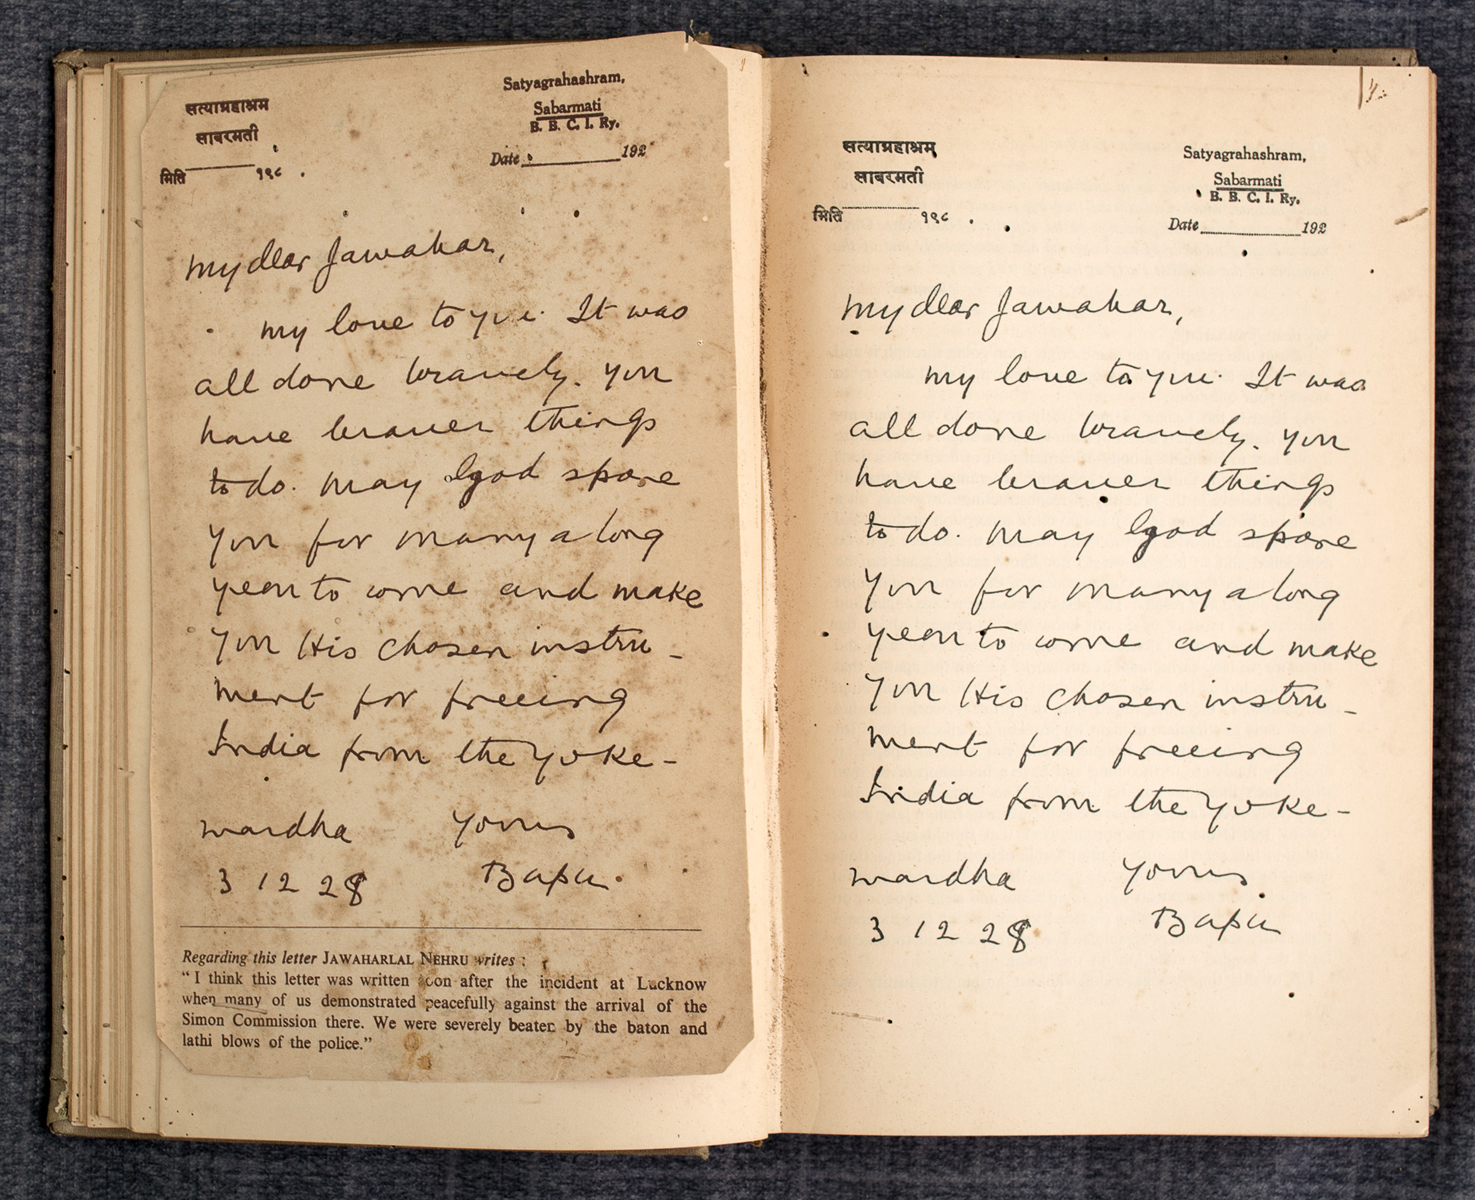 सत्याग्रहाश्रम
साबरमती
मिति १९८ .
Satyagrahashram,
Sabarmati
B. B. C. I. Ry.
Date 192
My dear Jawahar,
My love to you. It was
all done bravely. You
have braver things
to do. May God spare
you for many a long
year to come and make
you His chosen instru-
ment for freeing
India from the yoke-
Wardha Yours
3 12 28 Bapu
Regarding this letter JAWAHARLAL NEHRU writes :
“ I think this letter was written soon after the incident at Lucknow
when many of us demonstrated peacefully against the arrival of the
Simon Commission there. We were severely beaten by the baton and
lathi blows of the police.”
सत्याग्रहाश्रम
साबरमती
मिति १९८ .
Satyagrahashram,
Sabarmati
B. B. C. I. Ry.
Date 192
My dear Jawahar,
My love to you. It was
all done bravely. You
have braver things
to do. May God spare
you for many a long
year to come and make
you His chosen instru-
ment for freeing
India from the yoke-
Wardha Yours
3 12 28 Bapu